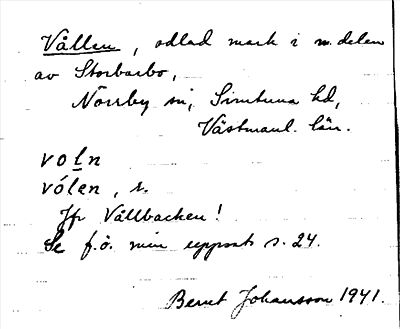 Vållen, odlad mark i m. delen
av Storbarbo,
Norrby sn, Simtuna hd,
Västmanl. län.
voln
vólen, s.
Jfr Vållbacken!
Se f.ö. min uppsats s. 24.
Bernt Johansson 1941.